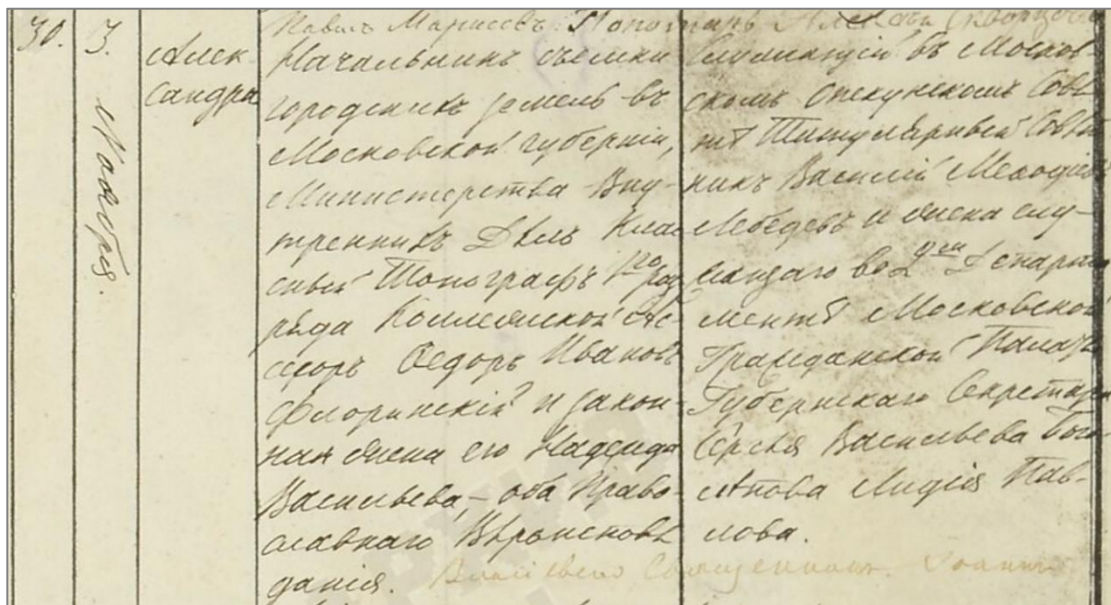 30.
3.
Ноября.
Алек-
сандра
Павелъ Пономарь
Начальникъ съемки
городскихъ земель въ
Московской губерніи,
Министерства Вну-
треннихъ Дѣлъ Клас
сный Топографъ 1го раз
ряда Коллежской Ас-
сесоръ Ѳедоръ Ивановъ
Флоринскій и закон-
ная жена его Надежда
Васильева, – оба Право-
славнаго Вѣроисповѣ
данія.
Служащій въ Москов-
скомъ Опекунскомъ Совѣ
тѣ Титулярный Совѣт
никъ Василій
Лебедевъ и жена слу-
жащаго во 2мъ Департа
ментѣ Московской
Гражданской Палаты
Губернскаго Секретаря
Сергѣя Васильева
Лидія Пав-
лова.
Священникъ